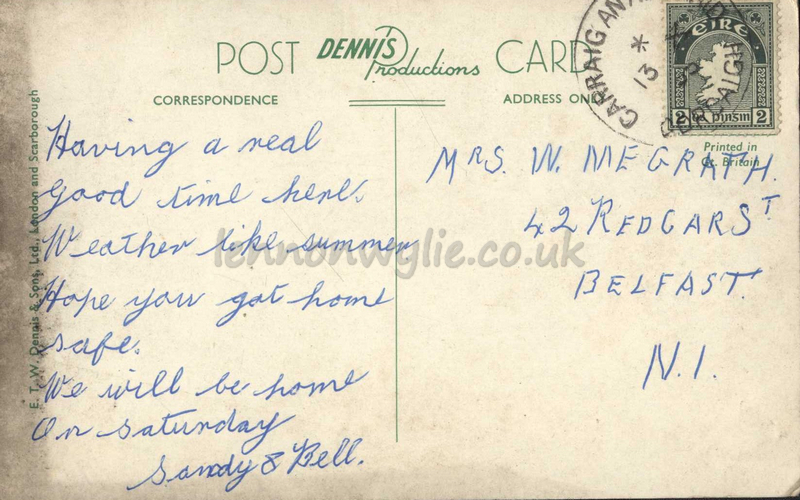 POST DENNIS Productions CARD
CORRESPONDENCE
ADDRESS ONLY
Having a real
good time here.
Weather like summer
Hope you got home
safe.
We will be home
On saturday
Sandy & Bell.
MRS. W. MEGRATH.
42 REDCAR ST
BELFAST.
N.I.
Printed in
Gt. Britain
E. T. W. Dennis & Sons, Ltd., London and Scarborough
ÉIRE
2 2
CARRAIG
13
lennonwylie.co.uk